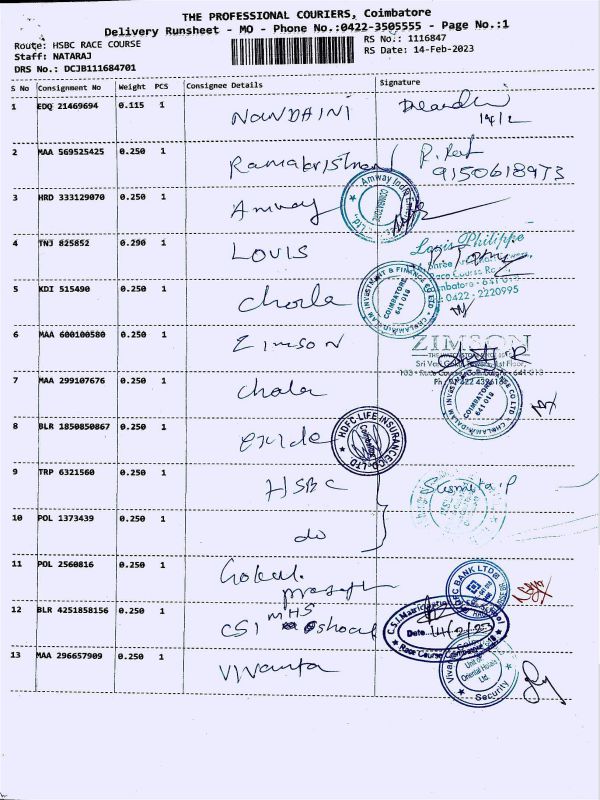 THE PROFESSIONAL COURIERS, Coimbatore
Delivery Runsheet - MO - Phone No.:0422-3505555 - Page No.:1
Route: HSBC RACE COURSE
RS No.: 1116847
Staff: NATARAJ
RS Date: 14-Feb-2023
DRS No.: DCJB111684701
S No Consignment No Weight PCS Consignee Details Signature
1 EDQ 21469694 0.115 1 NANDHINI
14/2
2 MAA 569525425 0.250 1 Ramakrishnan
9150618973
3 HRD 333129070 0.250 1 Amway
COIMBATORE
4 TNJ 825852 0.290 1 LOUIS
Louis Philippe
Race Course Ro
0422 : 2220995
5 KDI 515490 0.250 1 Chola
CHOLAMANDALAM INVESTMENT & FINANCE CO LTD
COIMBATORE
641 018
6 MAA 600100580 0.250 1 Zimson
ZIMSON
7 MAA 299107676 0.250 1 Chola
COIMBATORE
641 018
8 BLR 1850850867 0.250 1 exide
HDFC LIFE INSURANCE CO. LTD.
9 TRP 6321560 0.250 1 HSBC
Susmita.P
10 POL 1373439 0.250 1 do
11 POL 2560816 0.250 1 Gokul
BANK LTD
12 BLR 4251858156 0.250 1 CSI MHS
C.S.I. Matriculation
Date
Race Course Coimbatore
13 MAA 296657909 0.250 1 Vivanta
Unit of
Oriental Hotels
Ltd.
Security